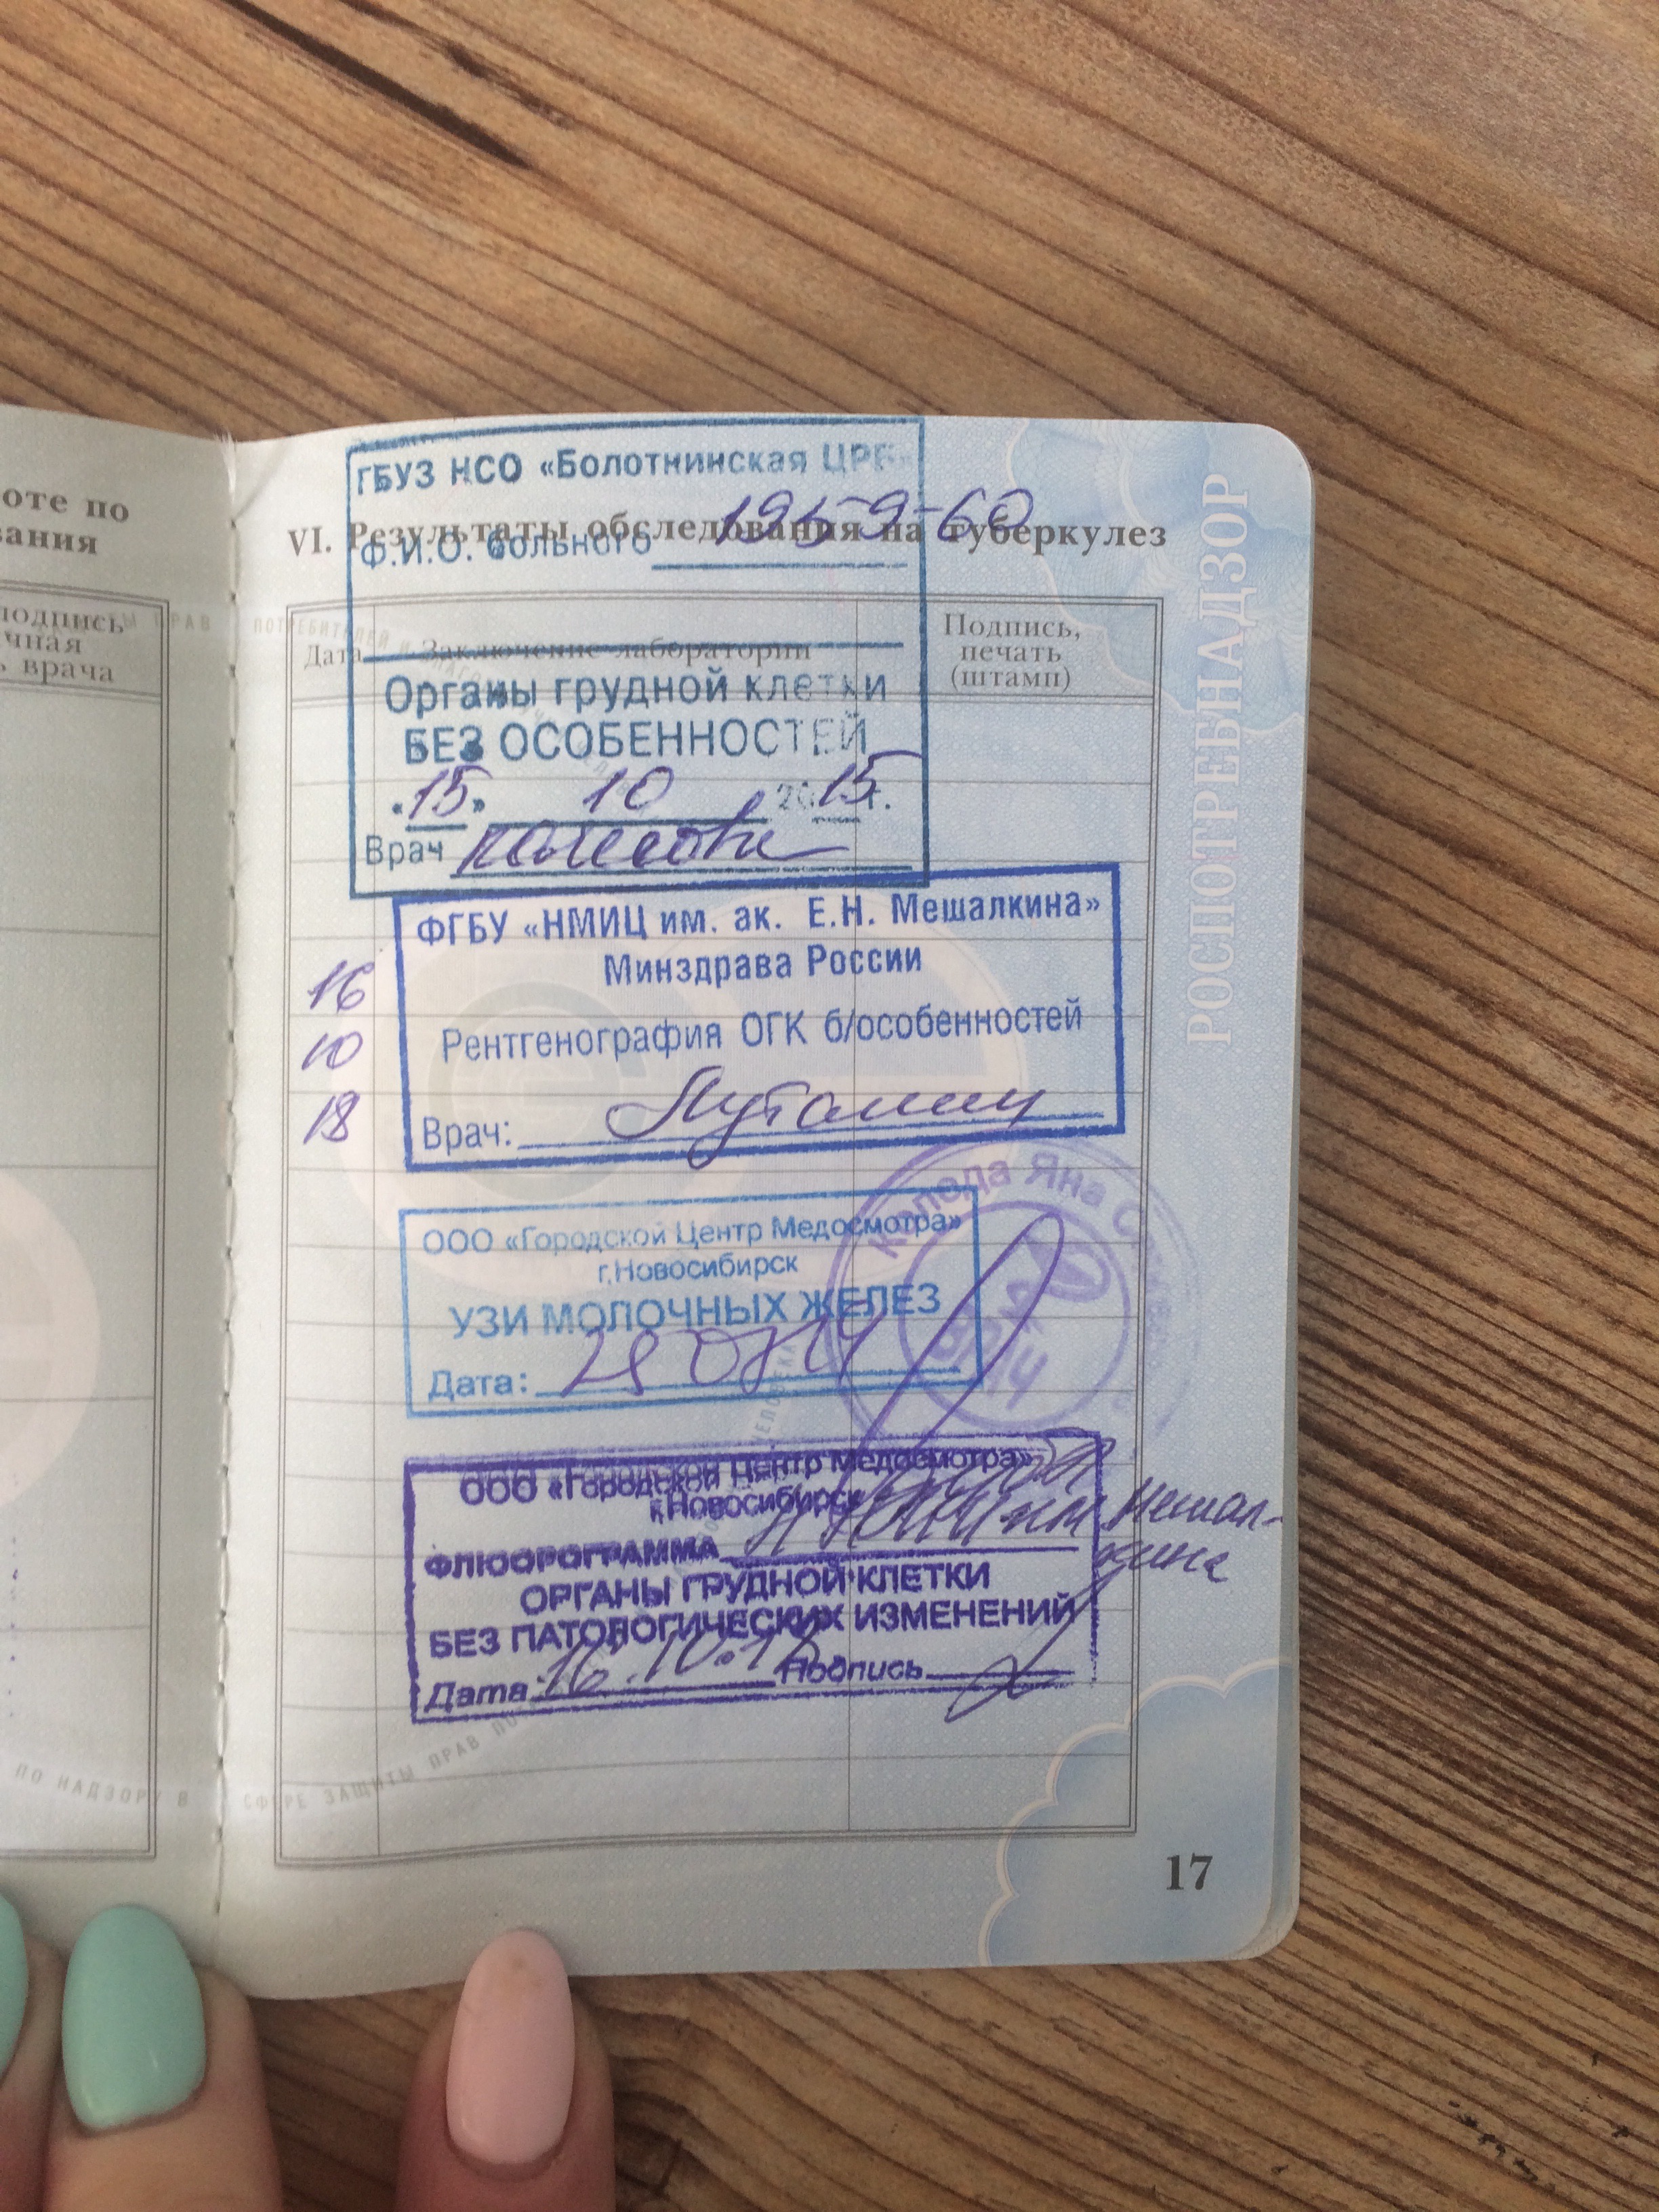 оте по
вания
подпись
чная
ь врача
ГБУЗ НСО «Болотнинская ЦРБ»
195-9-60
VI. Результаты обследования на туберкулез
Ф.И.О. больного
Дата
Заключение лаборатории
Подпись,
печать
(штамп)
Органы грудной клетки
БЕЗ ОСОБЕННОСТЕЙ
«15» 10 2015 г.
Врач
ФГБУ «НМИЦ им. ак. Е.Н. Мешалкина»
Минздрава России
16
10
18
Рентгенография ОГК б/особенностей
Врач:
ООО «Городской Центр Медосмотра»
г.Новосибирск
УЗИ МОЛОЧНЫХ ЖЕЛЕЗ
Дата:
Яна
ООО «Городской Центр Медосмотра»
г.Новосибирск
ФЛЮОРОГРАММА
Мешал-
кина
ОРГАНЫ ГРУДНОЙ КЛЕТКИ
БЕЗ ПАТОЛОГИЧЕСКИХ ИЗМЕНЕНИЙ
Дата 16.10.18 Подпись
ПО НАДЗОРУ В СФЕРЕ ЗАЩИТЫ ПРАВ
РОСПОТРЕБНАДЗОР
17